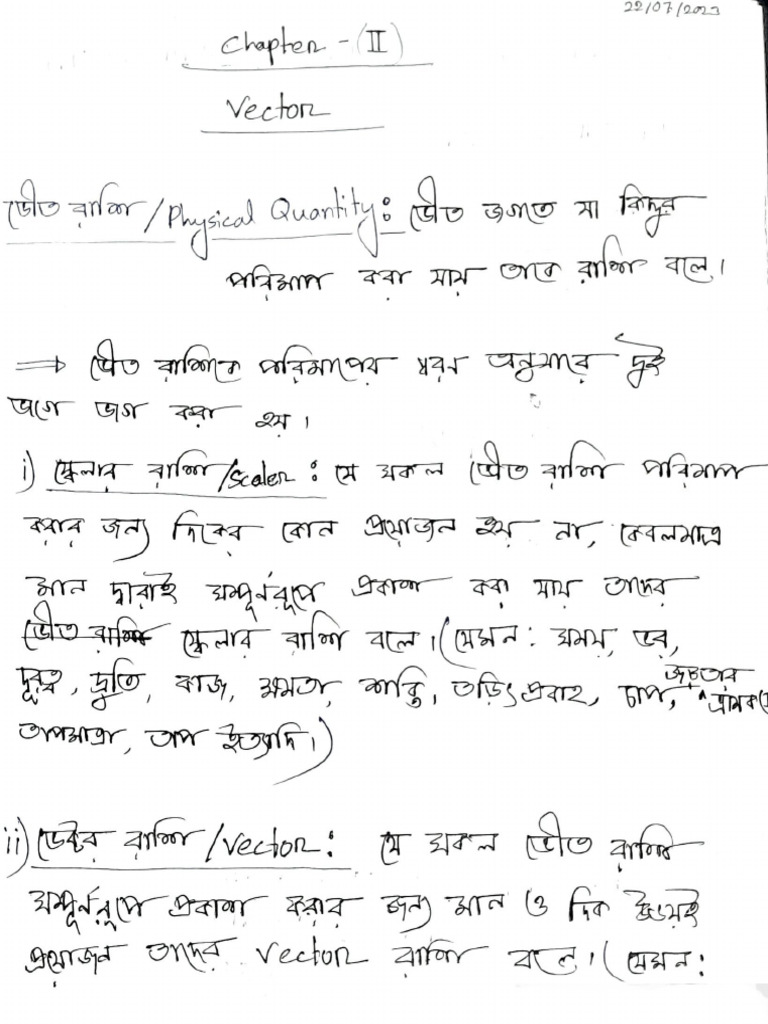 22/07/2023
Chapter - (II)
Vector
ভৌত রাশি/Physical Quantity: ভৌত জগতে যা কিছুর
পরিমাপ করা যায় তাকে রাশি বলে।
⇒ ভৌত রাশিকে পরিমাপের ধরন অনুসারে দুই
ভাগে ভাগ করা হয়।
i) স্কেলার রাশি/scaler: যে সকল ভৌত রাশি পরিমাপ
করার জন্য দিকের কোন প্রয়োজন হয় না, কেবলমাত্র
মান দ্বারাই সম্পূর্নরূপে প্রকাশ করা যায় তাদের
ভৌত রাশি স্কেলার রাশি বলে। (যেমন: সময়, ভর,
দূরত্ব, দ্রুতি, কাজ, ক্ষমতা, শক্তি, তড়িৎপ্রবাহ, চাপ, জড়তার ভ্রামক,
তাপমাত্রা, তাপ ইত্যাদি।)
ii) ভেক্টর রাশি/Vector: যে সকল ভৌত রাশি
সম্পূর্নরূপে প্রকাশ করার জন্য মান ও দিক উভয়ই
প্রয়োজন তাদের Vector রাশি বলে। (যেমন: